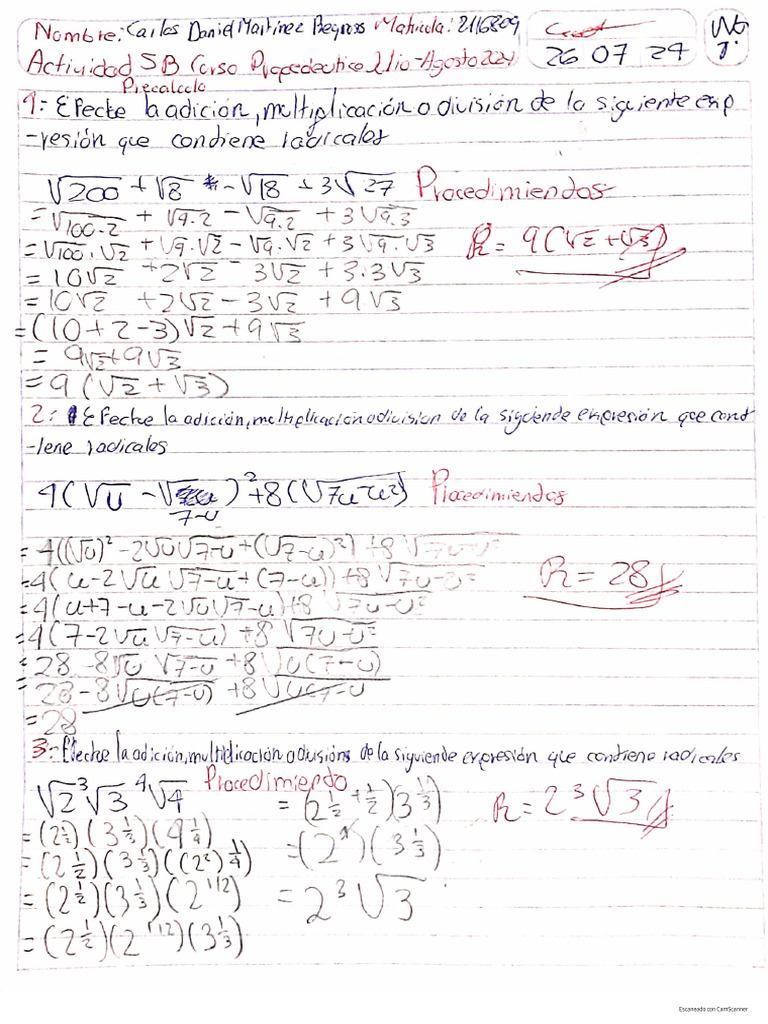 Nombre: Carlos Daniel Martinez Matricula: 2116809
26 07 24
Actividad 5B Curso Propedeutico Julio-Agosto 2024
Precalculo
1:- Efecte la adición, multiplicación o división de la siguiente exp
-resión que condiene radicales
√200 + √8 - √18 + 3√27 Procedimiendos
= √100·2 + √9·2 - √9·2 + 3√9·3
= √100·√2 + √9·√2 - √9·√2 + 3√9·√3
R = 9(√2 + √3)
= 10√2 + 2√2 - 3√2 + 3·3√3
= 10√2 + 2√2 - 3√2 + 9√3
= (10 + 2 - 3)√2 + 9√3
= 9√2 + 9√3
= 9(√2 + √3)
2:- Efectue la adición, multiplicación o división de la siguiende expresión que cont
-iene radicales
4(√u - √7-u)² + 8(√7u-u²) Procedimiendos
= 4((√u)² - 2√u√7-u + (√7-u)²) + 8√7u-u²
= 4(u - 2√u√7-u + (7-u)) + 8√7u-u²
R = 28
= 4(u + 7 - u - 2√u√7-u) + 8√7u-u²
= 4(7 - 2√u√7-u) + 8√7u-u²
= 28 - 8√u√7-u + 8√u(7-u)
= 28 - 8√u(7-u) + 8√u(7-u)
= 28
3:- Efectue la adición, multiplicación o divisións de la siguiende expresión que contiene radicales
√2 ³√3 ⁴√4 Procedimiendo
= (2^½)(3^⅓)(4^¼)
= (2^½)(3^⅓)((2²)^¼)
= (2^½)(3^⅓)(2^1/2)
= (2^½)(2^1/2)(3^⅓)
= (2^½+½)(3^⅓)
= (2¹)(3^⅓)
= 2 ³√3
R = 2 ³√3
Escaneado con CamScanner